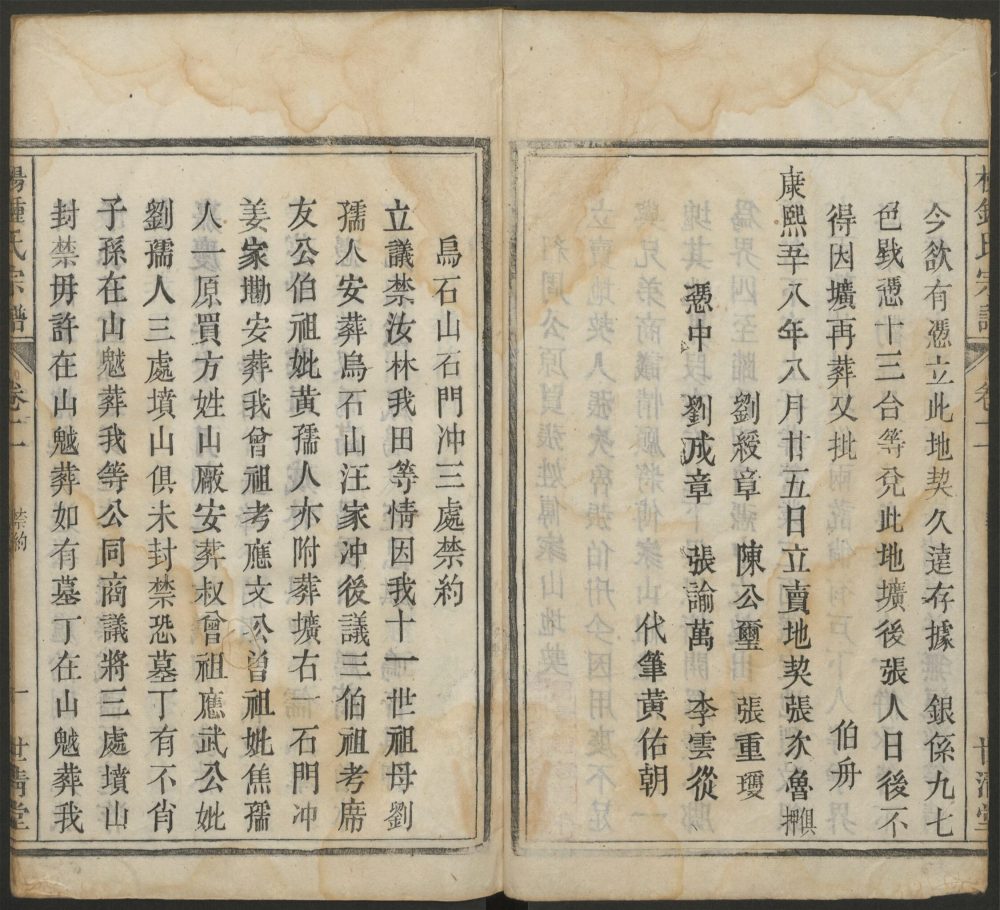 今欲有憑立此地契久遠存據　銀係九七
色戥憑十三台等兌此地壙後張人日後不
得因壙再葬又批　伯舟
康熙五十八年八月廿五日立賣地契張次魯 俱押
憑中　劉綬章　陳公璽　張重瓊
劉成章　張諭萬　李雲從
代筆黃佑朝
烏石山石門冲三處禁約
立議禁汝林我田等情因我十一世祖母劉
孺人安葬烏石山汪家冲後議三伯祖考席
友公伯祖妣黃孺人亦附葬壙右一石門冲
姜家坳安葬我曾祖考應文公曾祖妣焦孺
人一原買方姓山廠安葬叔曾祖應武公妣
劉孺人三處墳山俱未封禁恐墓丁有不肖
子孫在山魆葬我等公同商議將三處墳山
封禁毋許在山魆葬如有墓丁在山魆葬我
鍾氏宗譜　卷十二　禁約　一　世清堂